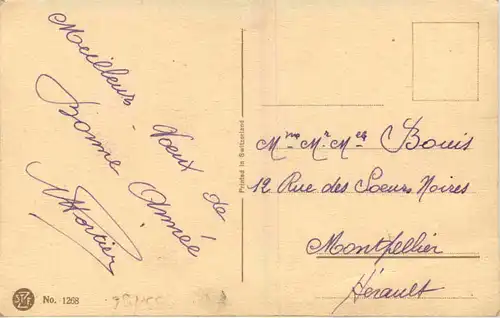 Meilleurs Voeux de
Bonne Année
Printed in Switzerland
Mme Mr Mes Bouis
12 Rue des Soeurs Noires
Montpellier
Hérault
No. 1268